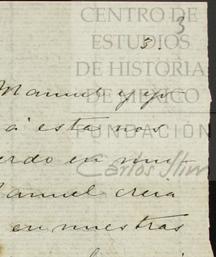 CENTRO DE
ESTUDIOS
DE HISTORIA
DE MÉXICO
FUNDACIÓN
Carlos Slim
3
3.
Manuel y yo
á este nos
erdo en mi
Manuel creia
en nuestras